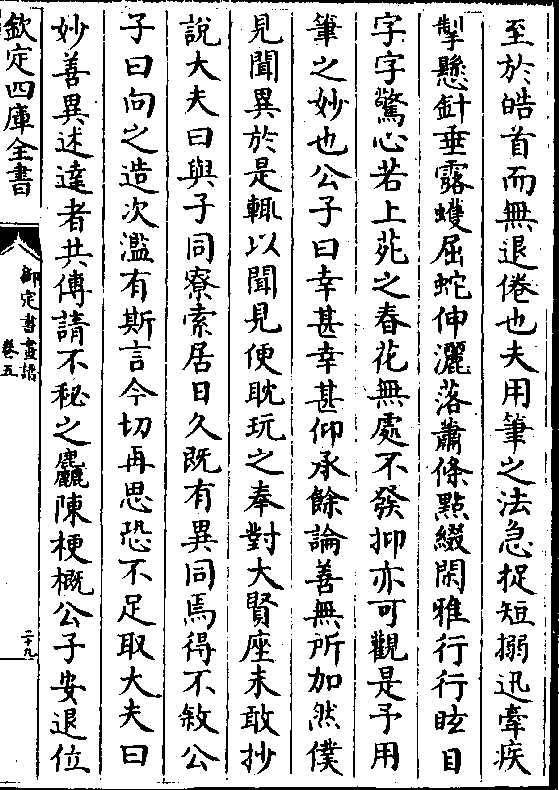 至於皓首而無退倦也夫用筆之法急捉短搦迅牽疾
掣懸針垂露蠖屈蛇伸灑落蕭條點綴閑雅行行眩目
字字驚心若上苑之春花無處不發抑亦可觀是予用
筆之妙也公子曰幸甚幸甚仰承餘論善無所加然僕
見聞異於是輒以聞見便耽玩之奉對大賢座未敢抄
說大夫曰與子同寮索居日久既有異同焉得不敘公
子曰向之造次濫有斯言今切再思恐不足取大夫曰
妙善異述達者共傳請不秘之麤陳梗概公子安退位
欽定四庫全書
御定書畫譜
卷五
二十九